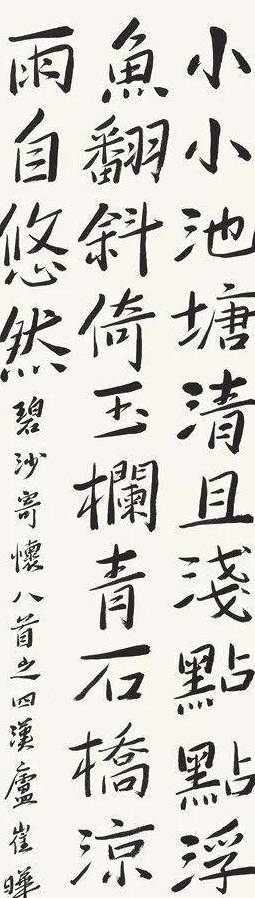 小小池塘清且淺點點浮
魚翻斜倚玉欄青石橋涼
雨自悠然
碧沙寄懷八首之四漢廬崔曄